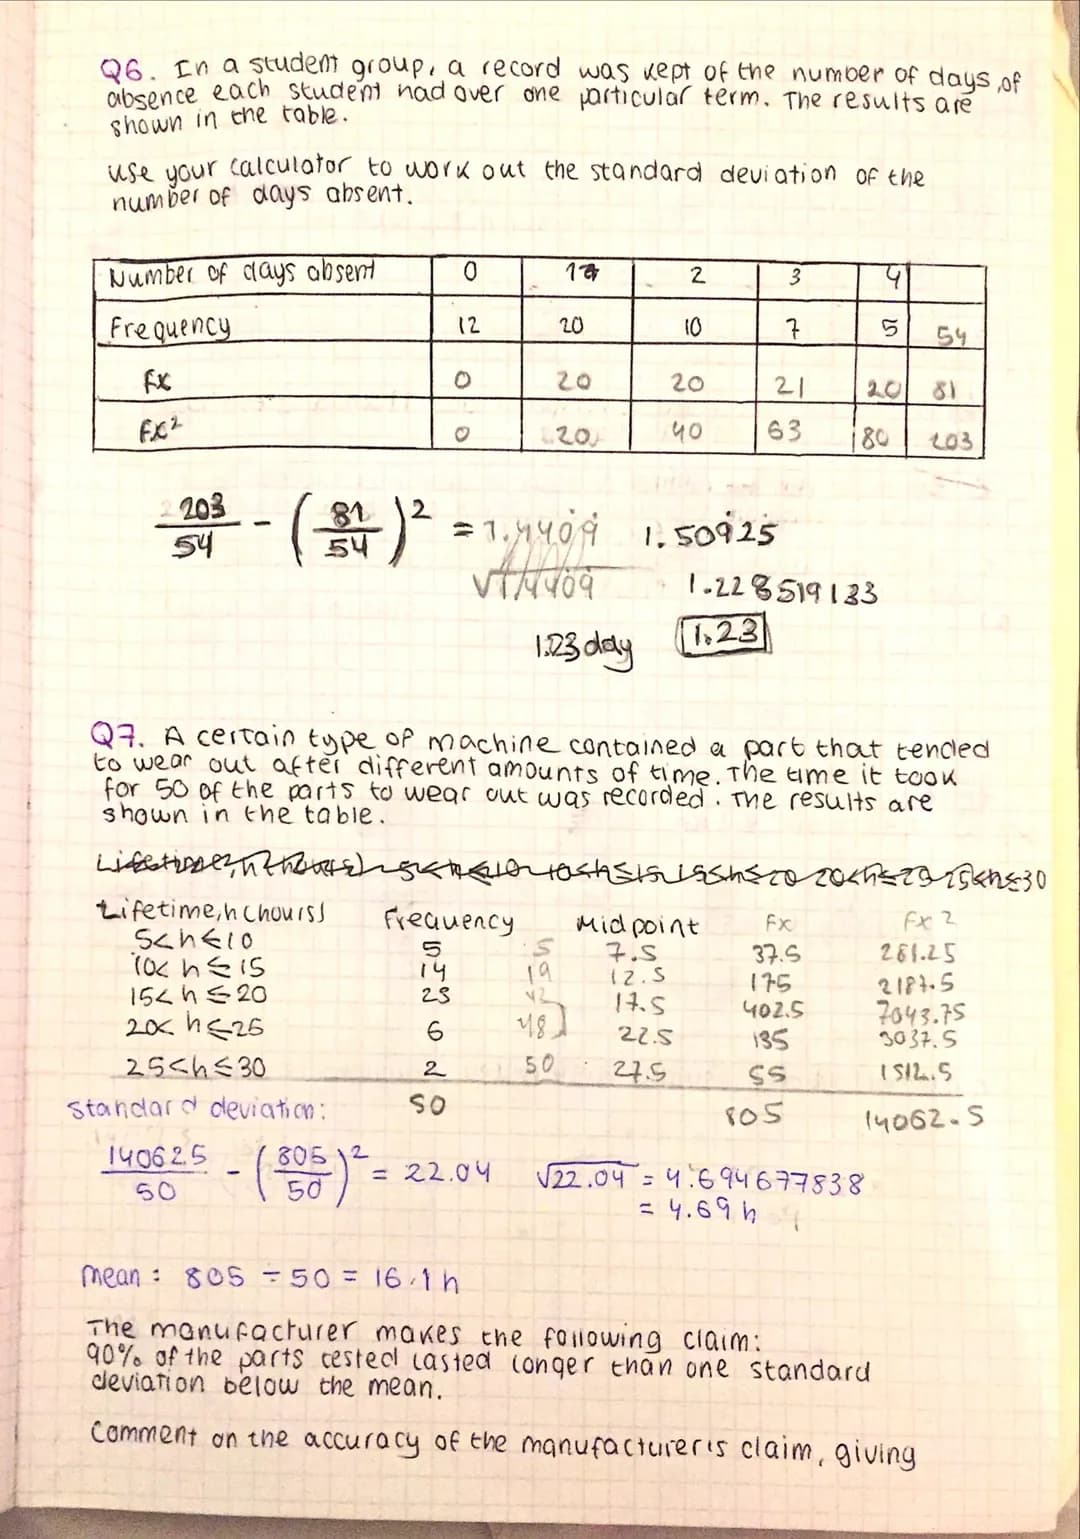 Q6. In a student group, a record was kept of the number of days of
absence each student had over one particular term. The results are
shown in the table.
use your calculator to work out the standard deviation of the
number of days absent.
Number of days absent 0 1 2 3 4
Frequency 12 20 10 7 5 54
fx 0 20 20 21 20 81
fx² 0 20 40 63 80 203
203/54 - (81/54)² = 1.4409 1.50925
√1.4409 1.228519133
1.23 day 1.23
Q7. A certain type of machine contained a part that tended
to wear out after different amounts of time. The time it took
for 50 of the parts to wear out was recorded. The results are
shown in the table.
Lifetime, h (hours) Frequency Midpoint fx fx²
5<h≤10 5 5 7.5 37.5 281.25
10<h≤15 14 19 12.5 175 2187.5
15<h≤20 23 42 17.5 402.5 7043.75
20<h≤25 6 48 22.5 135 3037.5
25<h≤30 2 50 27.5 55 1512.5
standard deviation: 50 805 14062.5
14062.5/50 - (805/50)² = 22.04 √22.04 = 4.694677838
= 4.69 h
mean: 805 ÷ 50 = 16.1 h
The manufacturer makes the following claim:
90% of the parts tested lasted longer than one standard
deviation below the mean.
Comment on the accuracy of the manufacturer's claim, giving